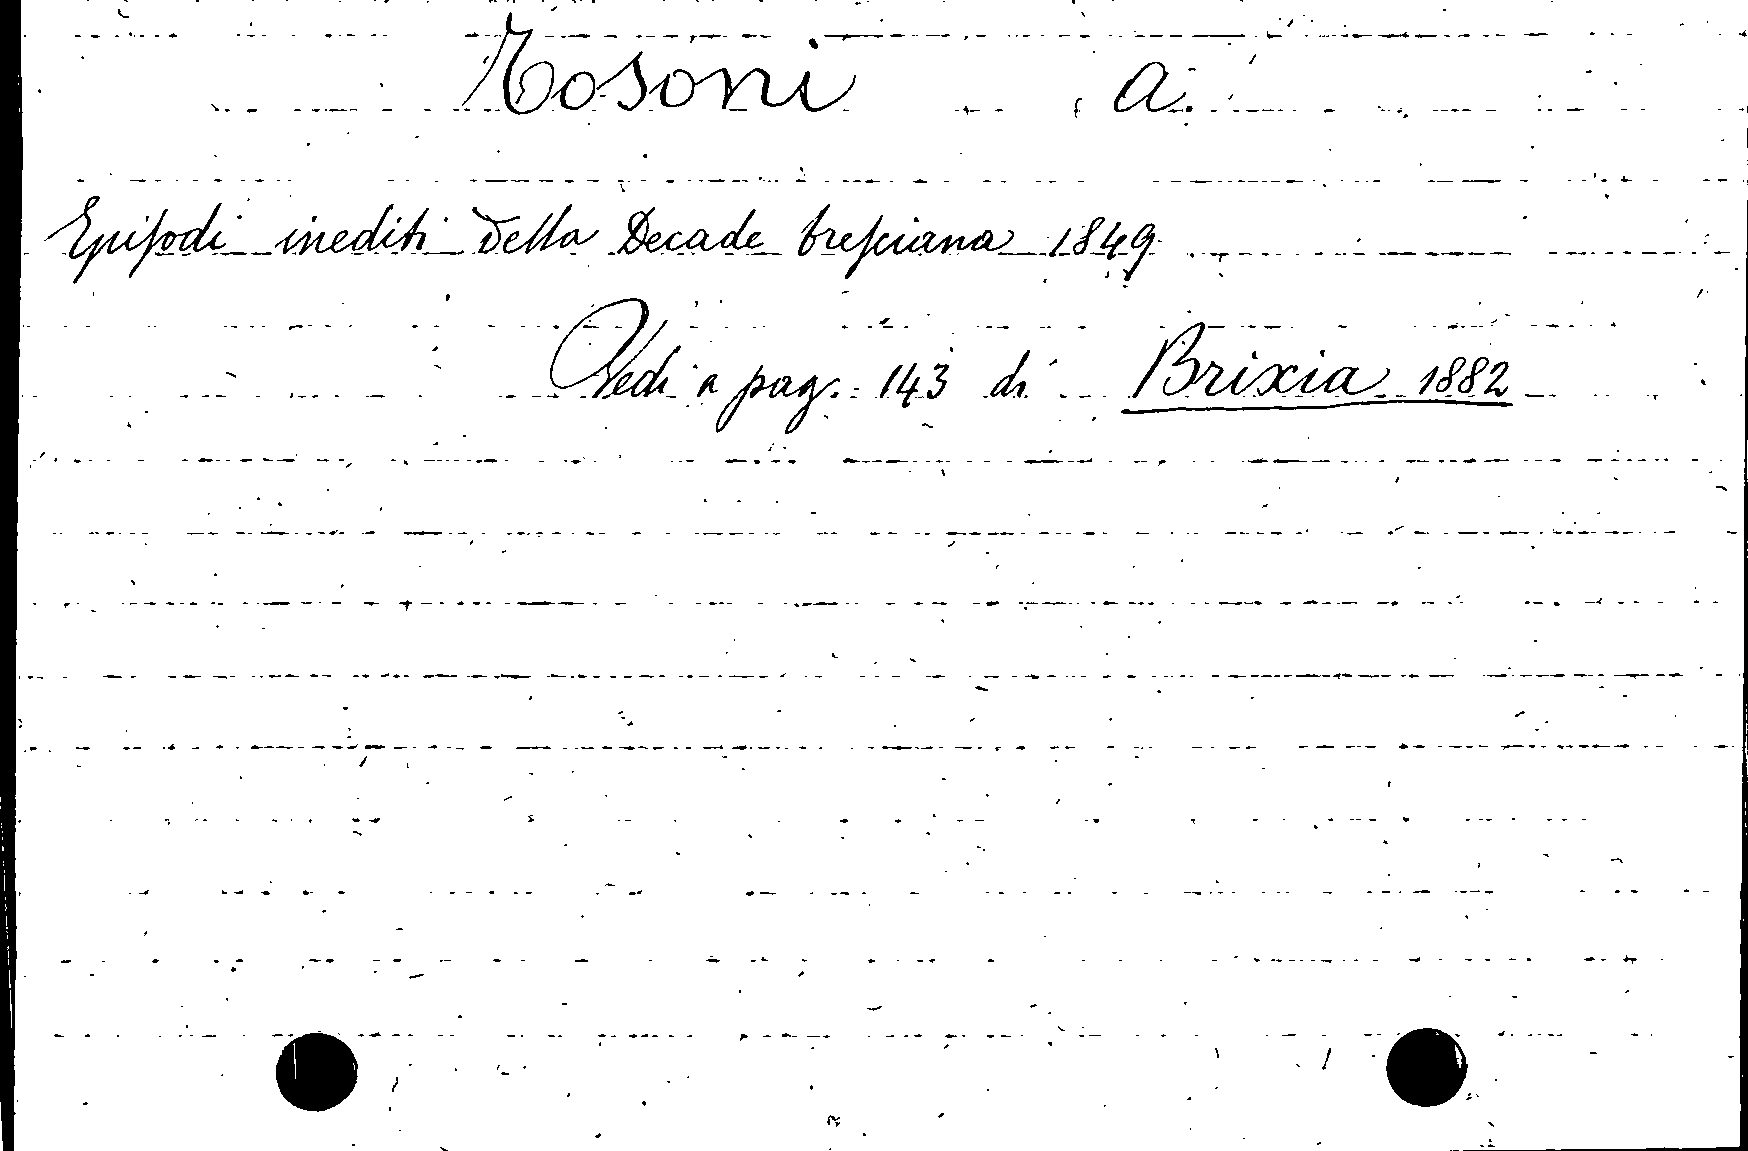 Tosoni A.
Episodi inediti della Decade bresciana 1849
Vedi a pag. 143 di Brixia 1882